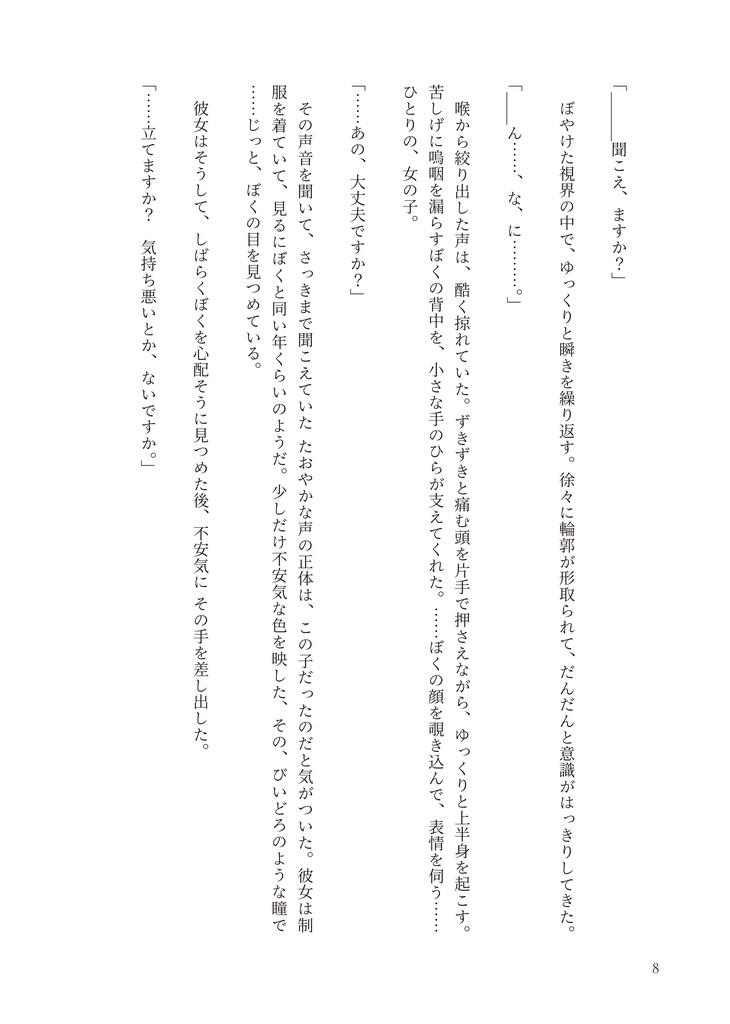 「――聞こえ、ますか？」
ぼやけた視界の中で、ゆっくりと瞬きを繰り返す。徐々に輪郭が形取られて、だんだんと意識がはっきりしてきた。
「―ん……、な、に………。」
喉から絞り出した声は、酷く掠れていた。ずきずきと痛む頭を片手で押さえながら、ゆっくりと上半身を起こす。
苦しげに嗚咽を漏らすぼくの背中を、小さな手のひらが支えてくれた。……ぼくの顔を覗き込んで、表情を伺う……
ひとりの、女の子。
「……あの、大丈夫ですか？」
その声音を聞いて、さっきまで聞こえていた たおやかな声の正体は、この子だったのだと気がついた。彼女は制
服を着ていて、見るにぼくと同い年くらいのようだ。少しだけ不安気な色を映した、その、びいどろのような瞳で
……じっと、ぼくの目を見つめている。
彼女はそうして、しばらくぼくを心配そうに見つめた後、不安気に その手を差し出した。
「……立てますか？　気持ち悪いとか、ないですか。」
8